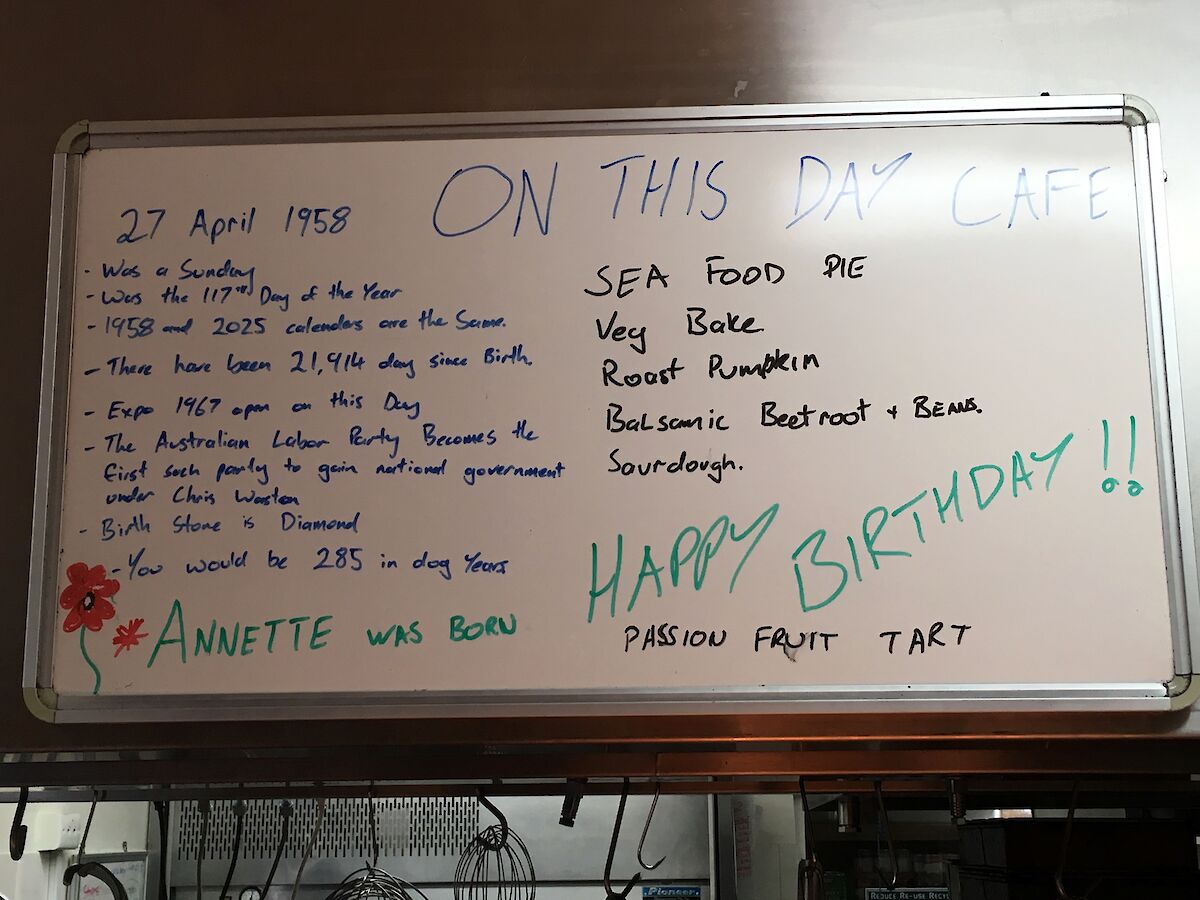 ON THIS DAY CAFE
27 April 1958
- Was a Sunday
- Was the 117th Day of the Year
- 1958 and 2025 calenders are the Same.
- There have been 21,914 day since Birth.
- Expo 1967 open on this Day
- The Australian Labor Party Becomes the
first such party to gain national government
under Chris Waston
- Birth Stone is Diamond
- You would be 285 in dog Years
ANNETTE WAS BORN
SEA FOOD PIE
Veg Bake
Roast Pumpkin
Balsamic Beetroot + BEANS.
Sourdough.
HAPPY BIRTHDAY!!
PASSION FRUIT TART
Pioneer
REDUCE, RE-USE, RECYCL